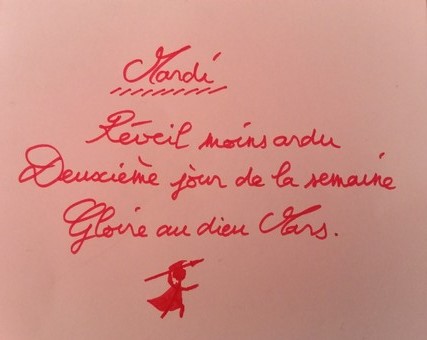 Mardi
Réveil moins ardu
Deuxième jour de la semaine
Gloire au dieu Mars.